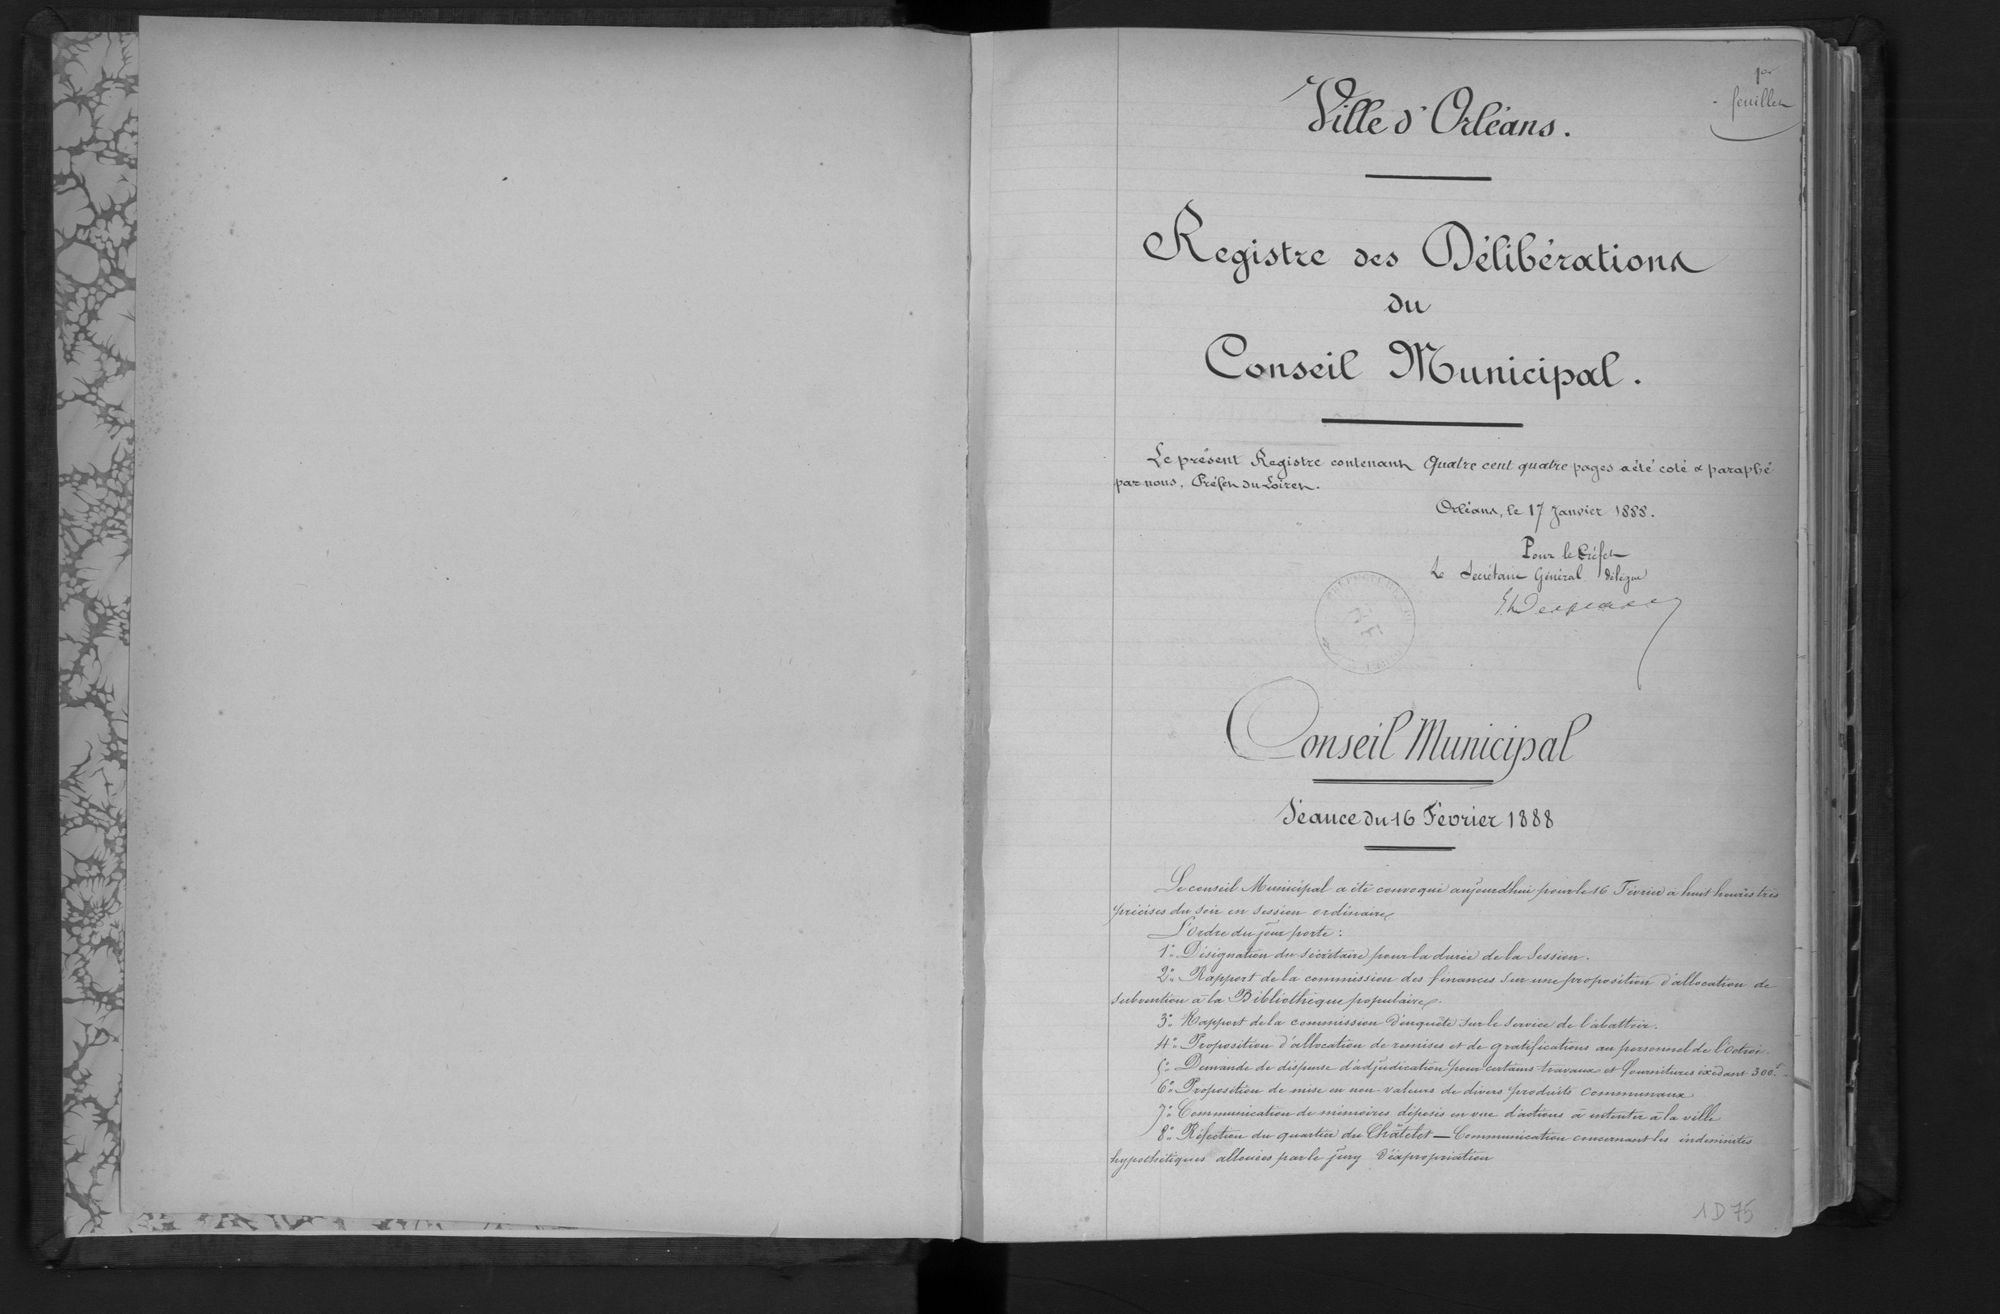 1er
feuillet
Ville d'Orléans.
Registre des Délibérations
du
Conseil Municipal.
Le présent Registre contenant Quatre cent quatre pages a été coté & paraphé
par nous, Préfet du Loiret.
Orléans, le 17 Janvier 1888.
Pour le Préfet
Le Secrétaire Général délégué
Conseil Municipal
Séance du 16 Février 1888
Le conseil Municipal a été convoqué aujourd'hui pour le 16 Février à huit heures très
précises du soir en session ordinaire.
L'ordre du jour porte :
1° Désignation du secrétaire pour la durée de la Session.
2° Rapport de la commission des finances sur une proposition d'allocation de
subvention à la Bibliothèque populaire.
3° Rapport de la commission d'enquête sur le service de l'abattoir.
4° Proposition d'allocation de remises et de gratifications au personnel de l'Octroi.
5° Demande de dispense d'adjudication pour certains travaux et fournitures exédant 300f.
6° Proposition de mise en non-valeurs de divers produits communaux
7° Communication de mémoires déposés en vue d'actions à intenter à la ville
8° Réfection du quartier du Châtelet — Communication concernant les indemnités
hypothétiques allouées par le jury d'expropriation
1D75